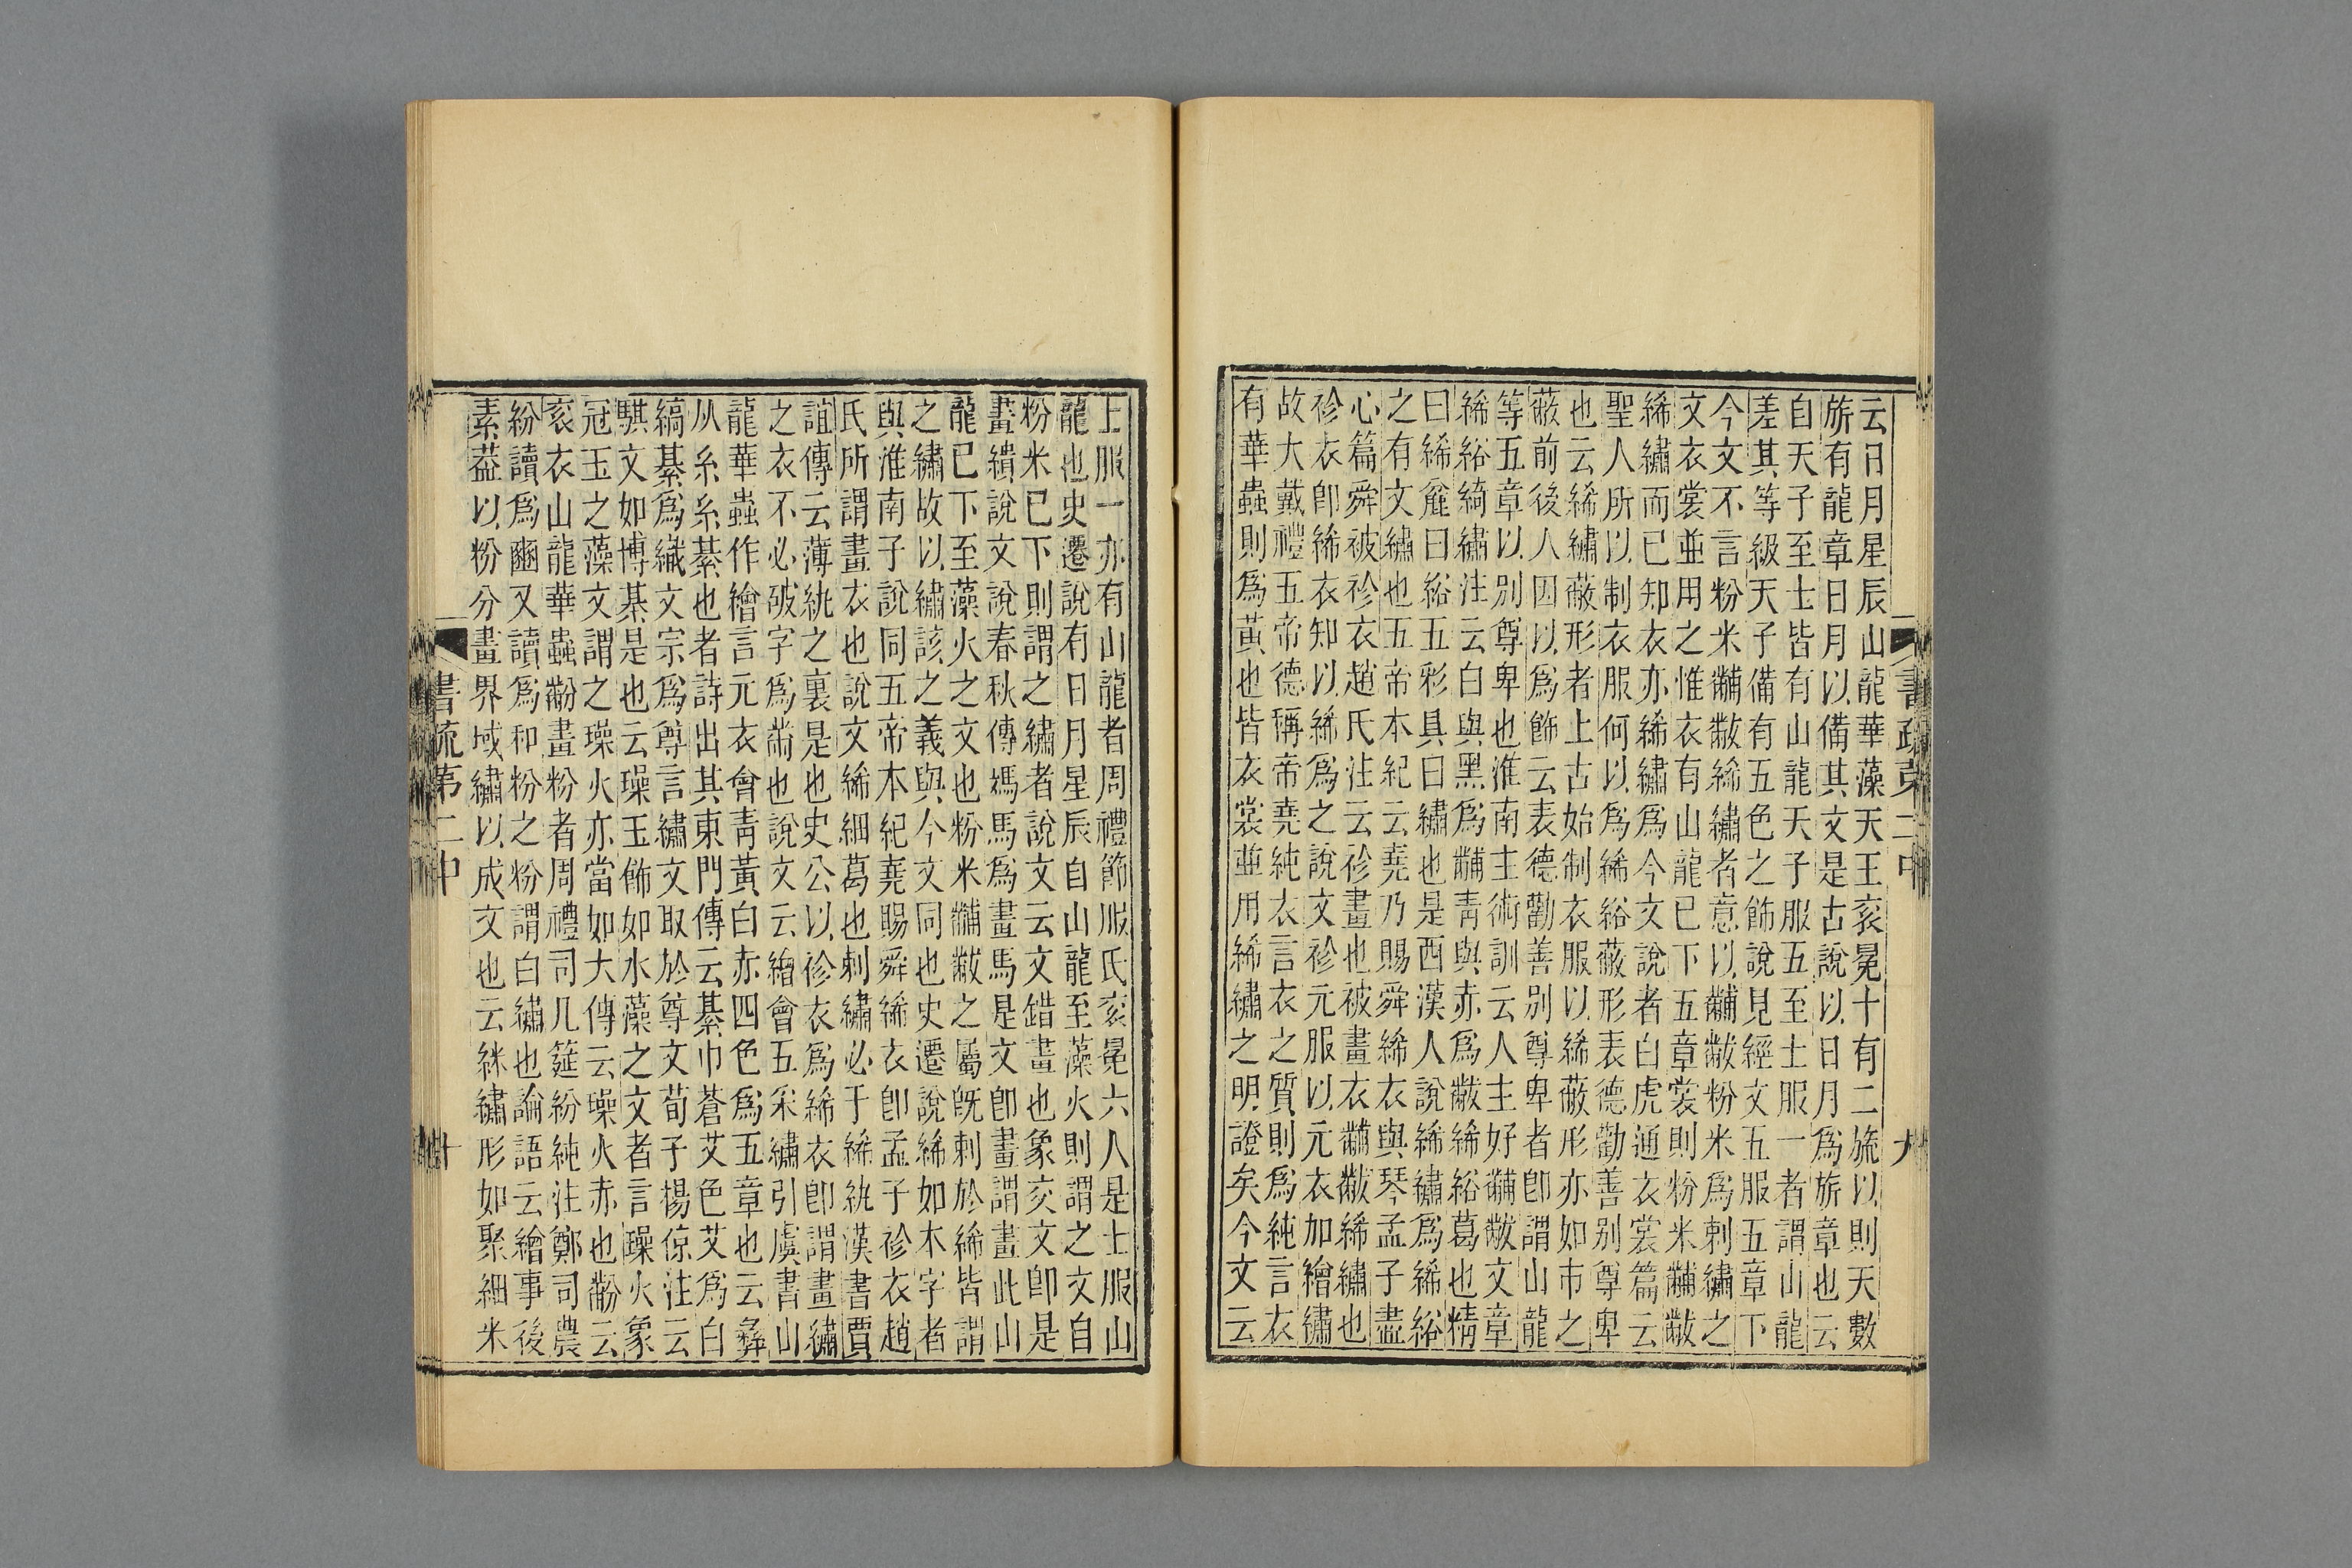 云日月星辰山龍華藻天王袞冕十有二旒以則天數
旂有龍章日月以備其文是古說以日月爲旂章也云
自天子至士皆有山龍天子服五至士服一者謂山龍
差其等級天子備有五色之飾說見經文五服五章下
今文不言粉米黼黻絺繡者意以黼黻粉米爲刺繡之
文衣裳並用之惟衣有山龍已下五章裳則粉米黼黻
絺繡而已知衣亦絺繡爲今文說者白虎通衣裳篇云
聖人所以制衣服何以爲絺綌蔽形表德勸善別尊卑
也云絺繡蔽形者上古始制衣服以絺蔽形亦如巿之
蔽前後人因以爲飾云表德勸善別尊卑者卽謂山龍
等五章以別尊卑也淮南主術訓云人主好黼黻文章
絺綌綺繡注云白與黑爲黼青與赤爲黻絺綌葛也精
曰絺麤曰綌五彩具曰繡也是西漢人說絺繡爲絺綌
之有文繡也五帝本紀云堯乃賜舜絺衣與琴孟子盡
心篇舜被袗衣趙氏注云袗畫也被畫衣黼黻絺繡也
袗衣卽絺衣知以絺爲之說文袗元服以元衣加繪繡
故大戴禮五帝德稱帝堯純衣言衣之質則爲純言衣
有華蟲則爲黃也皆衣裳並用絺繡之明證矣今文云
書疏第二中
九
士服一亦有山龍者周禮節服氏袞冕六人是士服山
龍也史遷說有日月星辰自山龍至藻火則謂之文自
粉米已下則謂之繡者說文云文錯畫也象交文卽是
畫繢說文說春秋傳媽馬爲畫馬是文卽畫謂畫此山
龍已下至藻火之文也粉米黼黻之屬旣刺於絺皆謂
之繡故以繡該之義與今文同也史遷說絺如本字者
與淮南子說同五帝本紀堯賜舜絺衣卽孟子袗衣趙
氏所謂畫衣也說文絺細葛也刺繡必于絺紈漢書賈
誼傳云薄紈之裏是也史公以袗衣爲絺衣卽謂畫繡
之衣不必破字爲黹也說文云繪會五采繡引虞書山
龍華蟲作繪言元衣會青黃白赤四色爲五章也云彝
从糸糸綦也者詩出其東門傳云綦巾蒼艾色艾爲白
縞綦爲織文宗爲尊言繡文取於尊文荀子楊倞注云
騏文如博綦是也云璪玉飾如水藻之文者言璪火象
冠玉之藻文謂之璪火亦當如大傳云璪火赤也黺云
袞衣山龍華蟲黺畫粉者周禮司几筵紛純注鄭司農
紛讀爲豳又讀爲和粉之粉謂白繡也論語云繪事後
素葢以粉分畫界域繡以成文也云絲繡形如聚細米
書疏第二中
十